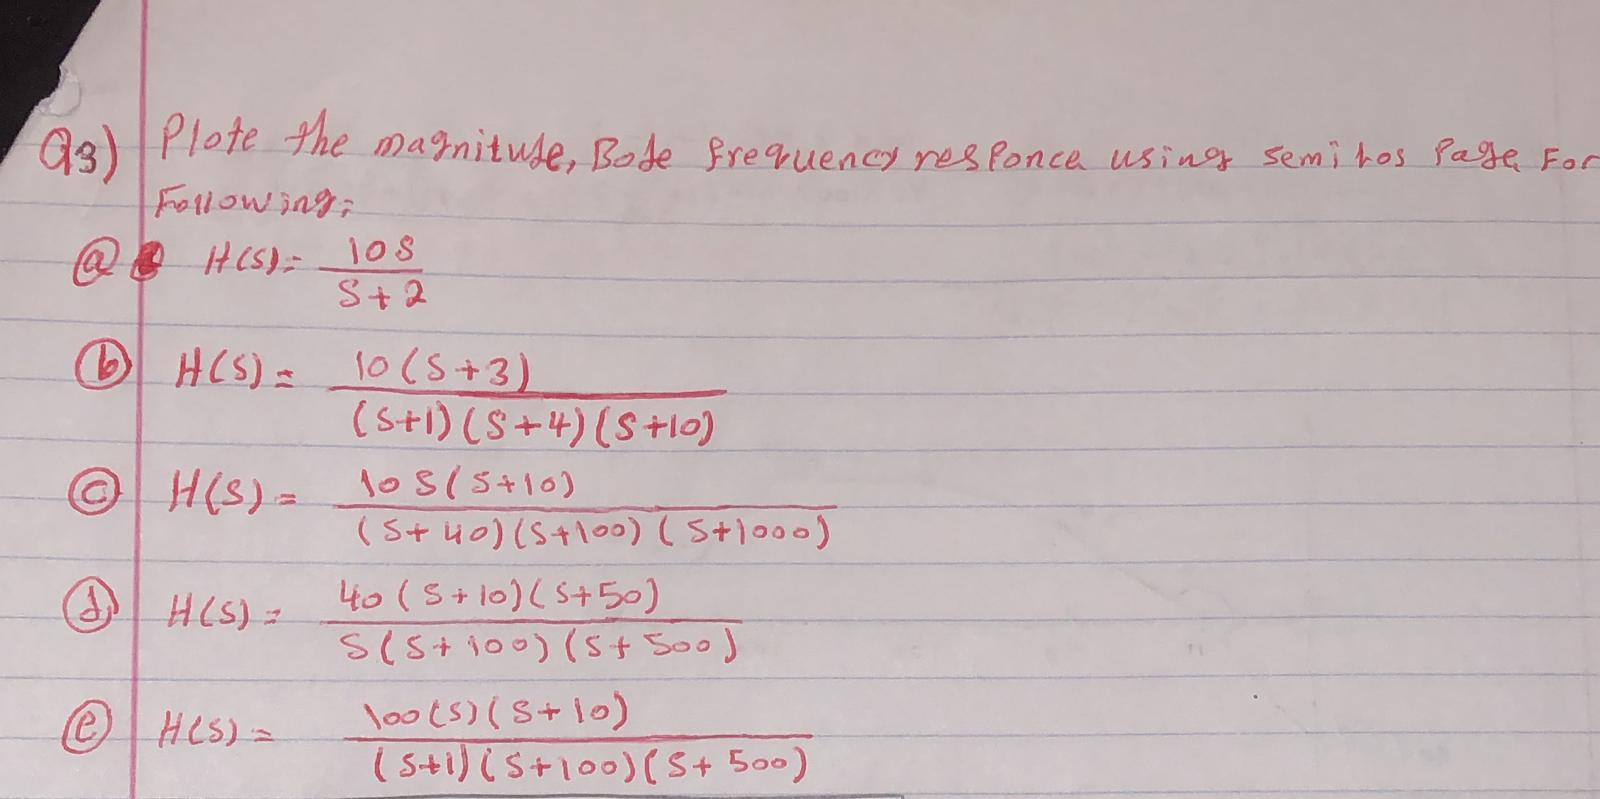 Q3) Plote the magnitude, Bode frequency responce using semi los Page For
Following:
(a) H(S) = 10S / S+2
(b) H(S) = 10(S+3) / (S+1)(S+4)(S+10)
(c) H(S) = 10S(S+10) / (S+40)(S+100)(S+1000)
(d) H(S) = 40(S+10)(S+50) / S(S+100)(S+500)
(e) H(S) = 100(S)(S+10) / (S+1)(S+100)(S+500)